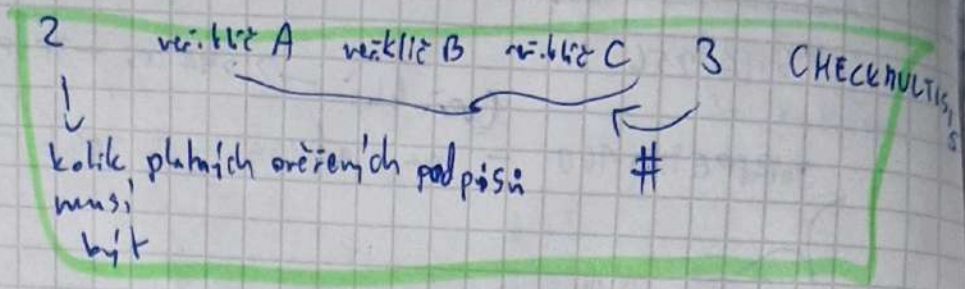 2 veř.klíč A veř.klíč B veř.klíč C 3 CHECKMULTISIG
kolik platných ověřených podpisů #
musí
být